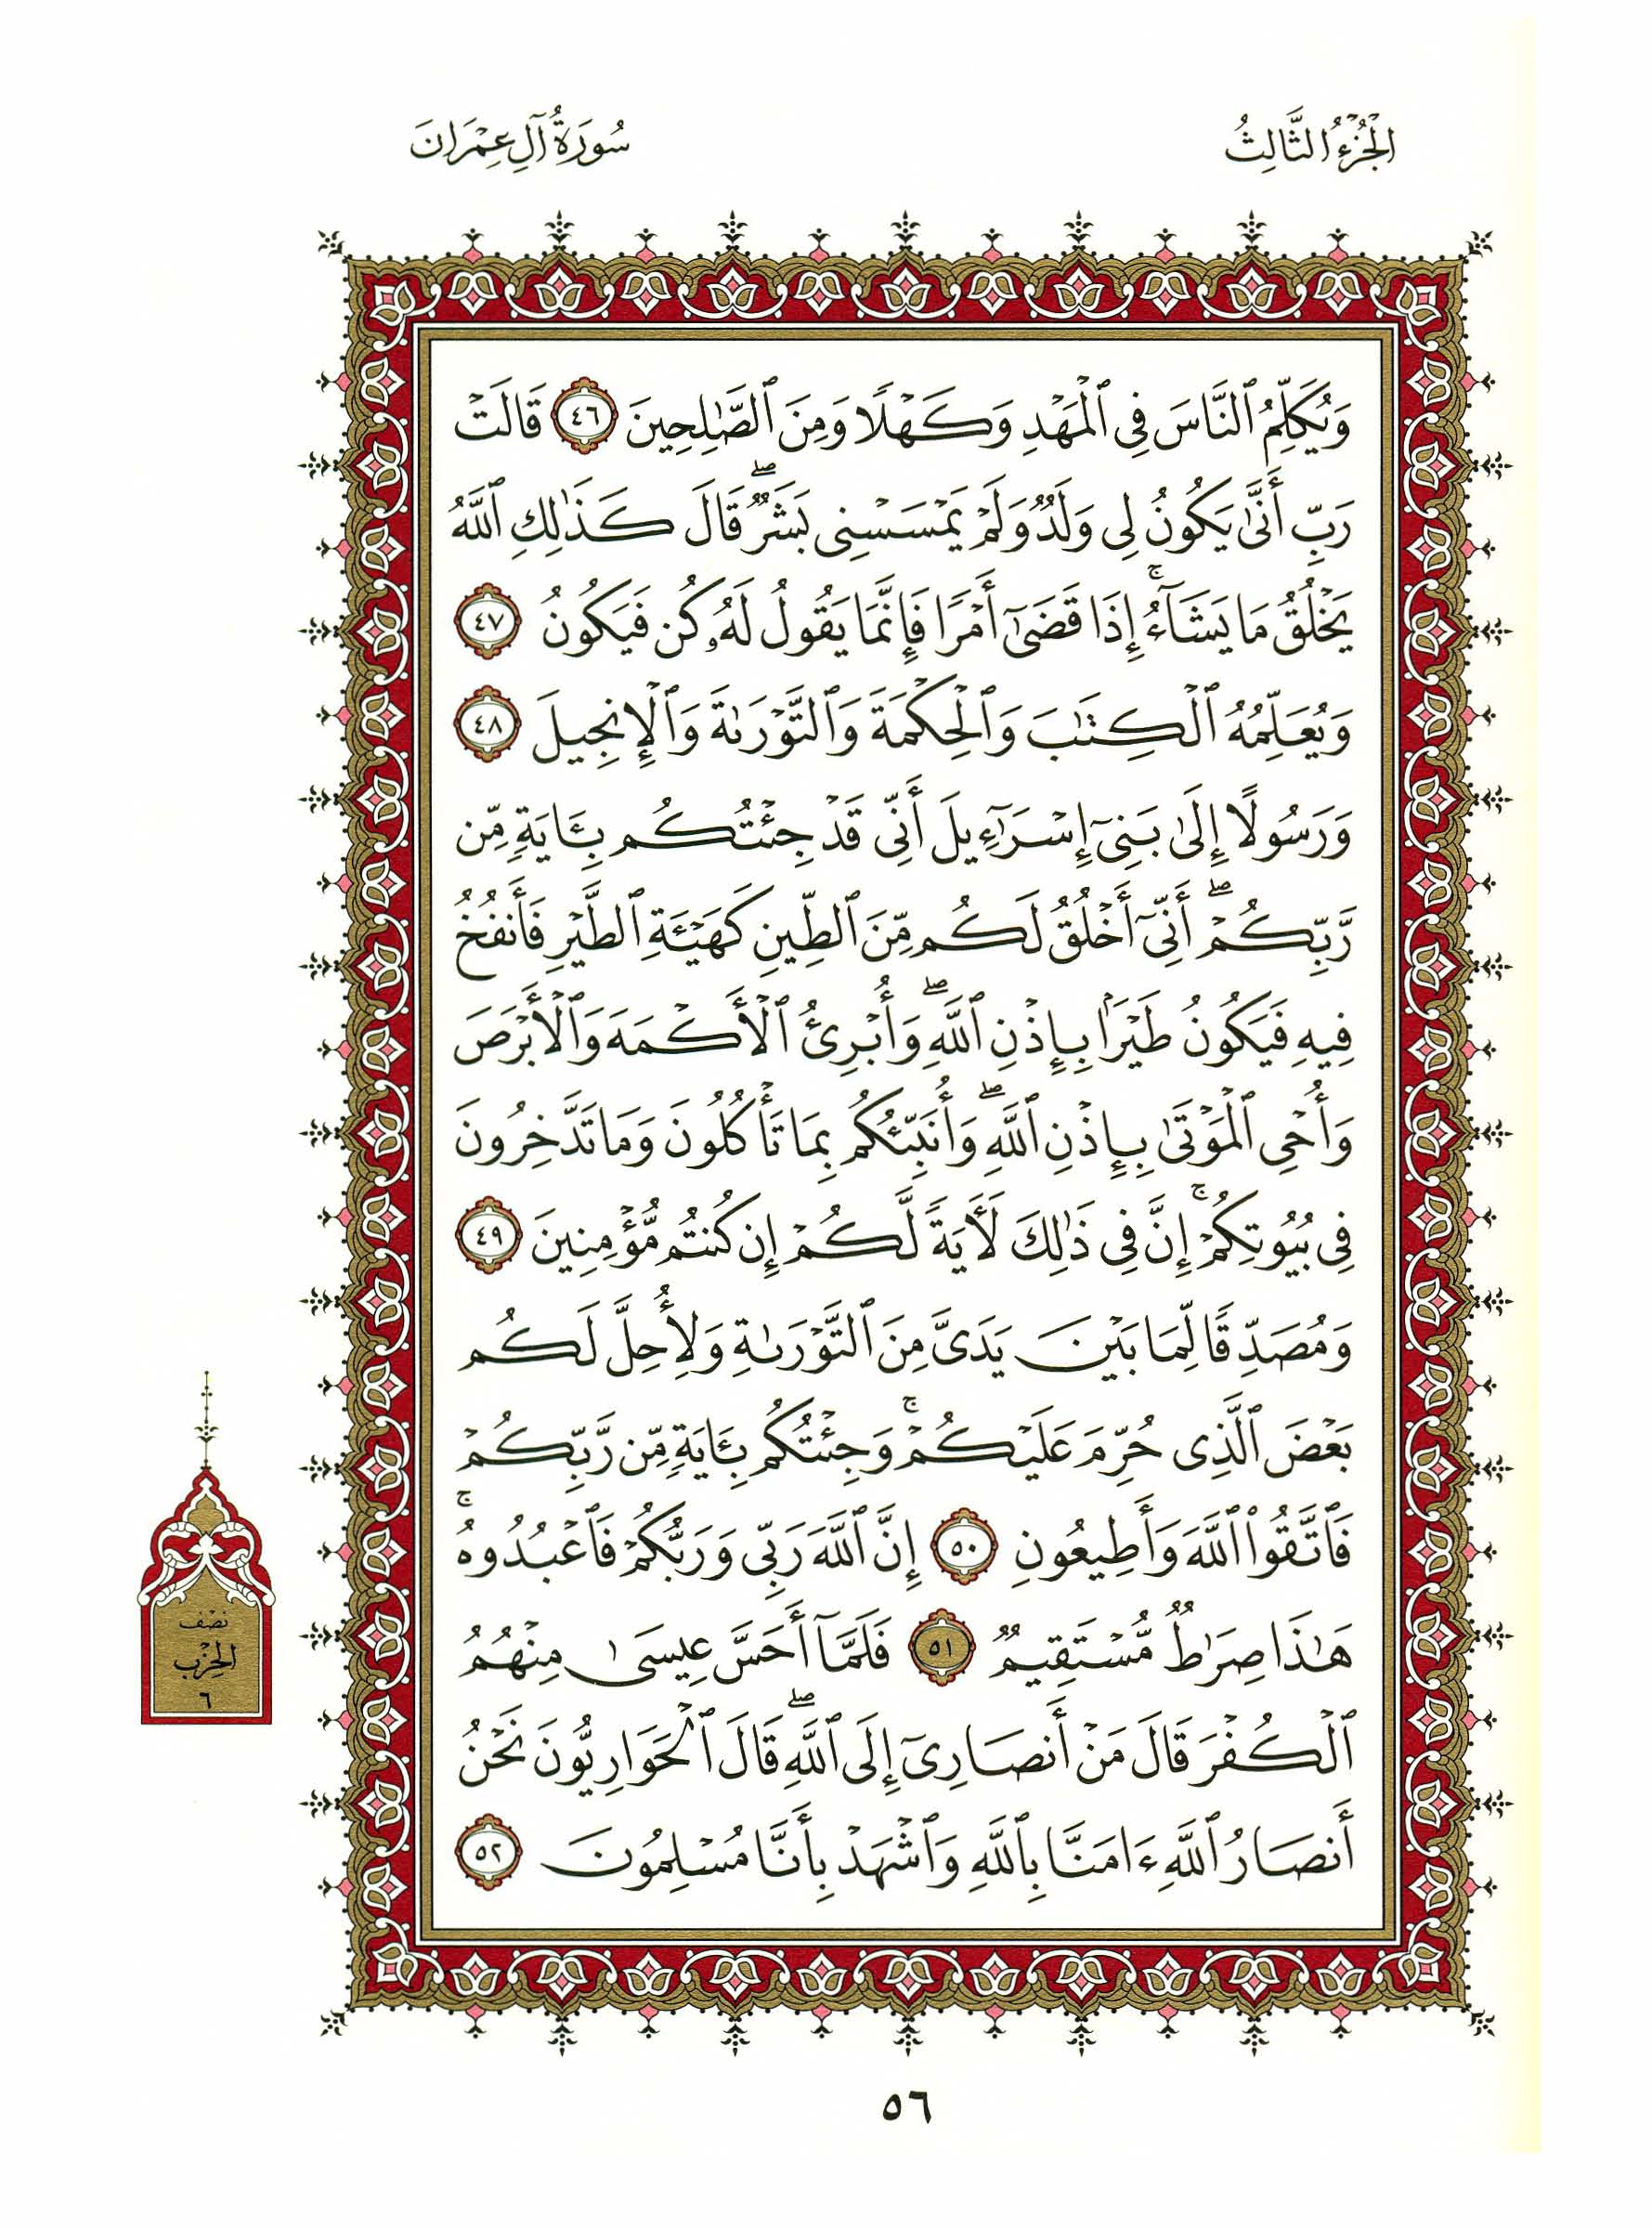 الجُزْءُ الثَّالِثُ
سُورَةُ آلِ عِمْرَانَ
وَيُكَلِّمُ ٱلنَّاسَ فِى ٱلْمَهْدِ وَكَهْلًا وَمِنَ ٱلصَّٰلِحِينَ ٤٦ قَالَتْ
رَبِّ أَنَّىٰ يَكُونُ لِى وَلَدٌ وَلَمْ يَمْسَسْنِى بَشَرٌ ۖ قَالَ كَذَٰلِكِ ٱللَّهُ
يَخْلُقُ مَا يَشَآءُ ۚ إِذَا قَضَىٰٓ أَمْرًا فَإِنَّمَا يَقُولُ لَهُۥ كُن فَيَكُونُ ٤٧
وَيُعَلِّمُهُ ٱلْكِتَٰبَ وَٱلْحِكْمَةَ وَٱلتَّوْرَىٰةَ وَٱلْإِنجِيلَ ٤٨
وَرَسُولًا إِلَىٰ بَنِىٓ إِسْرَٰٓءِيلَ أَنِّى قَدْ جِئْتُكُم بِـَٔايَةٍ مِّن
رَّبِّكُمْ ۖ أَنِّىٓ أَخْلُقُ لَكُم مِّنَ ٱلطِّينِ كَهَيْـَٔةِ ٱلطَّيْرِ فَأَنفُخُ
فِيهِ فَيَكُونُ طَيْرًۢا بِإِذْنِ ٱللَّهِ ۖ وَأُبْرِئُ ٱلْأَكْمَهَ وَٱلْأَبْرَصَ
وَأُحْىِ ٱلْمَوْتَىٰ بِإِذْنِ ٱللَّهِ ۖ وَأُنَبِّئُكُم بِمَا تَأْكُلُونَ وَمَا تَدَّخِرُونَ
فِى بُيُوتِكُمْ ۚ إِنَّ فِى ذَٰلِكَ لَـَٔايَةً لَّكُمْ إِن كُنتُم مُّؤْمِنِينَ ٤٩
وَمُصَدِّقًا لِّمَا بَيْنَ يَدَىَّ مِنَ ٱلتَّوْرَىٰةِ وَلِأُحِلَّ لَكُم
بَعْضَ ٱلَّذِى حُرِّمَ عَلَيْكُمْ ۚ وَجِئْتُكُم بِـَٔايَةٍ مِّن رَّبِّكُمْ
فَٱتَّقُوا۟ ٱللَّهَ وَأَطِيعُونِ ٥٠ إِنَّ ٱللَّهَ رَبِّى وَرَبُّكُمْ فَٱعْبُدُوهُ ۚ
هَٰذَا صِرَٰطٌ مُّسْتَقِيمٌ ٥١ فَلَمَّآ أَحَسَّ عِيسَىٰ مِنْهُمُ
ٱلْكُفْرَ قَالَ مَنْ أَنصَارِىٓ إِلَى ٱللَّهِ ۖ قَالَ ٱلْحَوَارِيُّونَ نَحْنُ
أَنصَارُ ٱللَّهِ ءَامَنَّا بِٱللَّهِ وَٱشْهَدْ بِأَنَّا مُسْلِمُونَ ٥٢
نصْف
الحِزْب
٦
٥٦